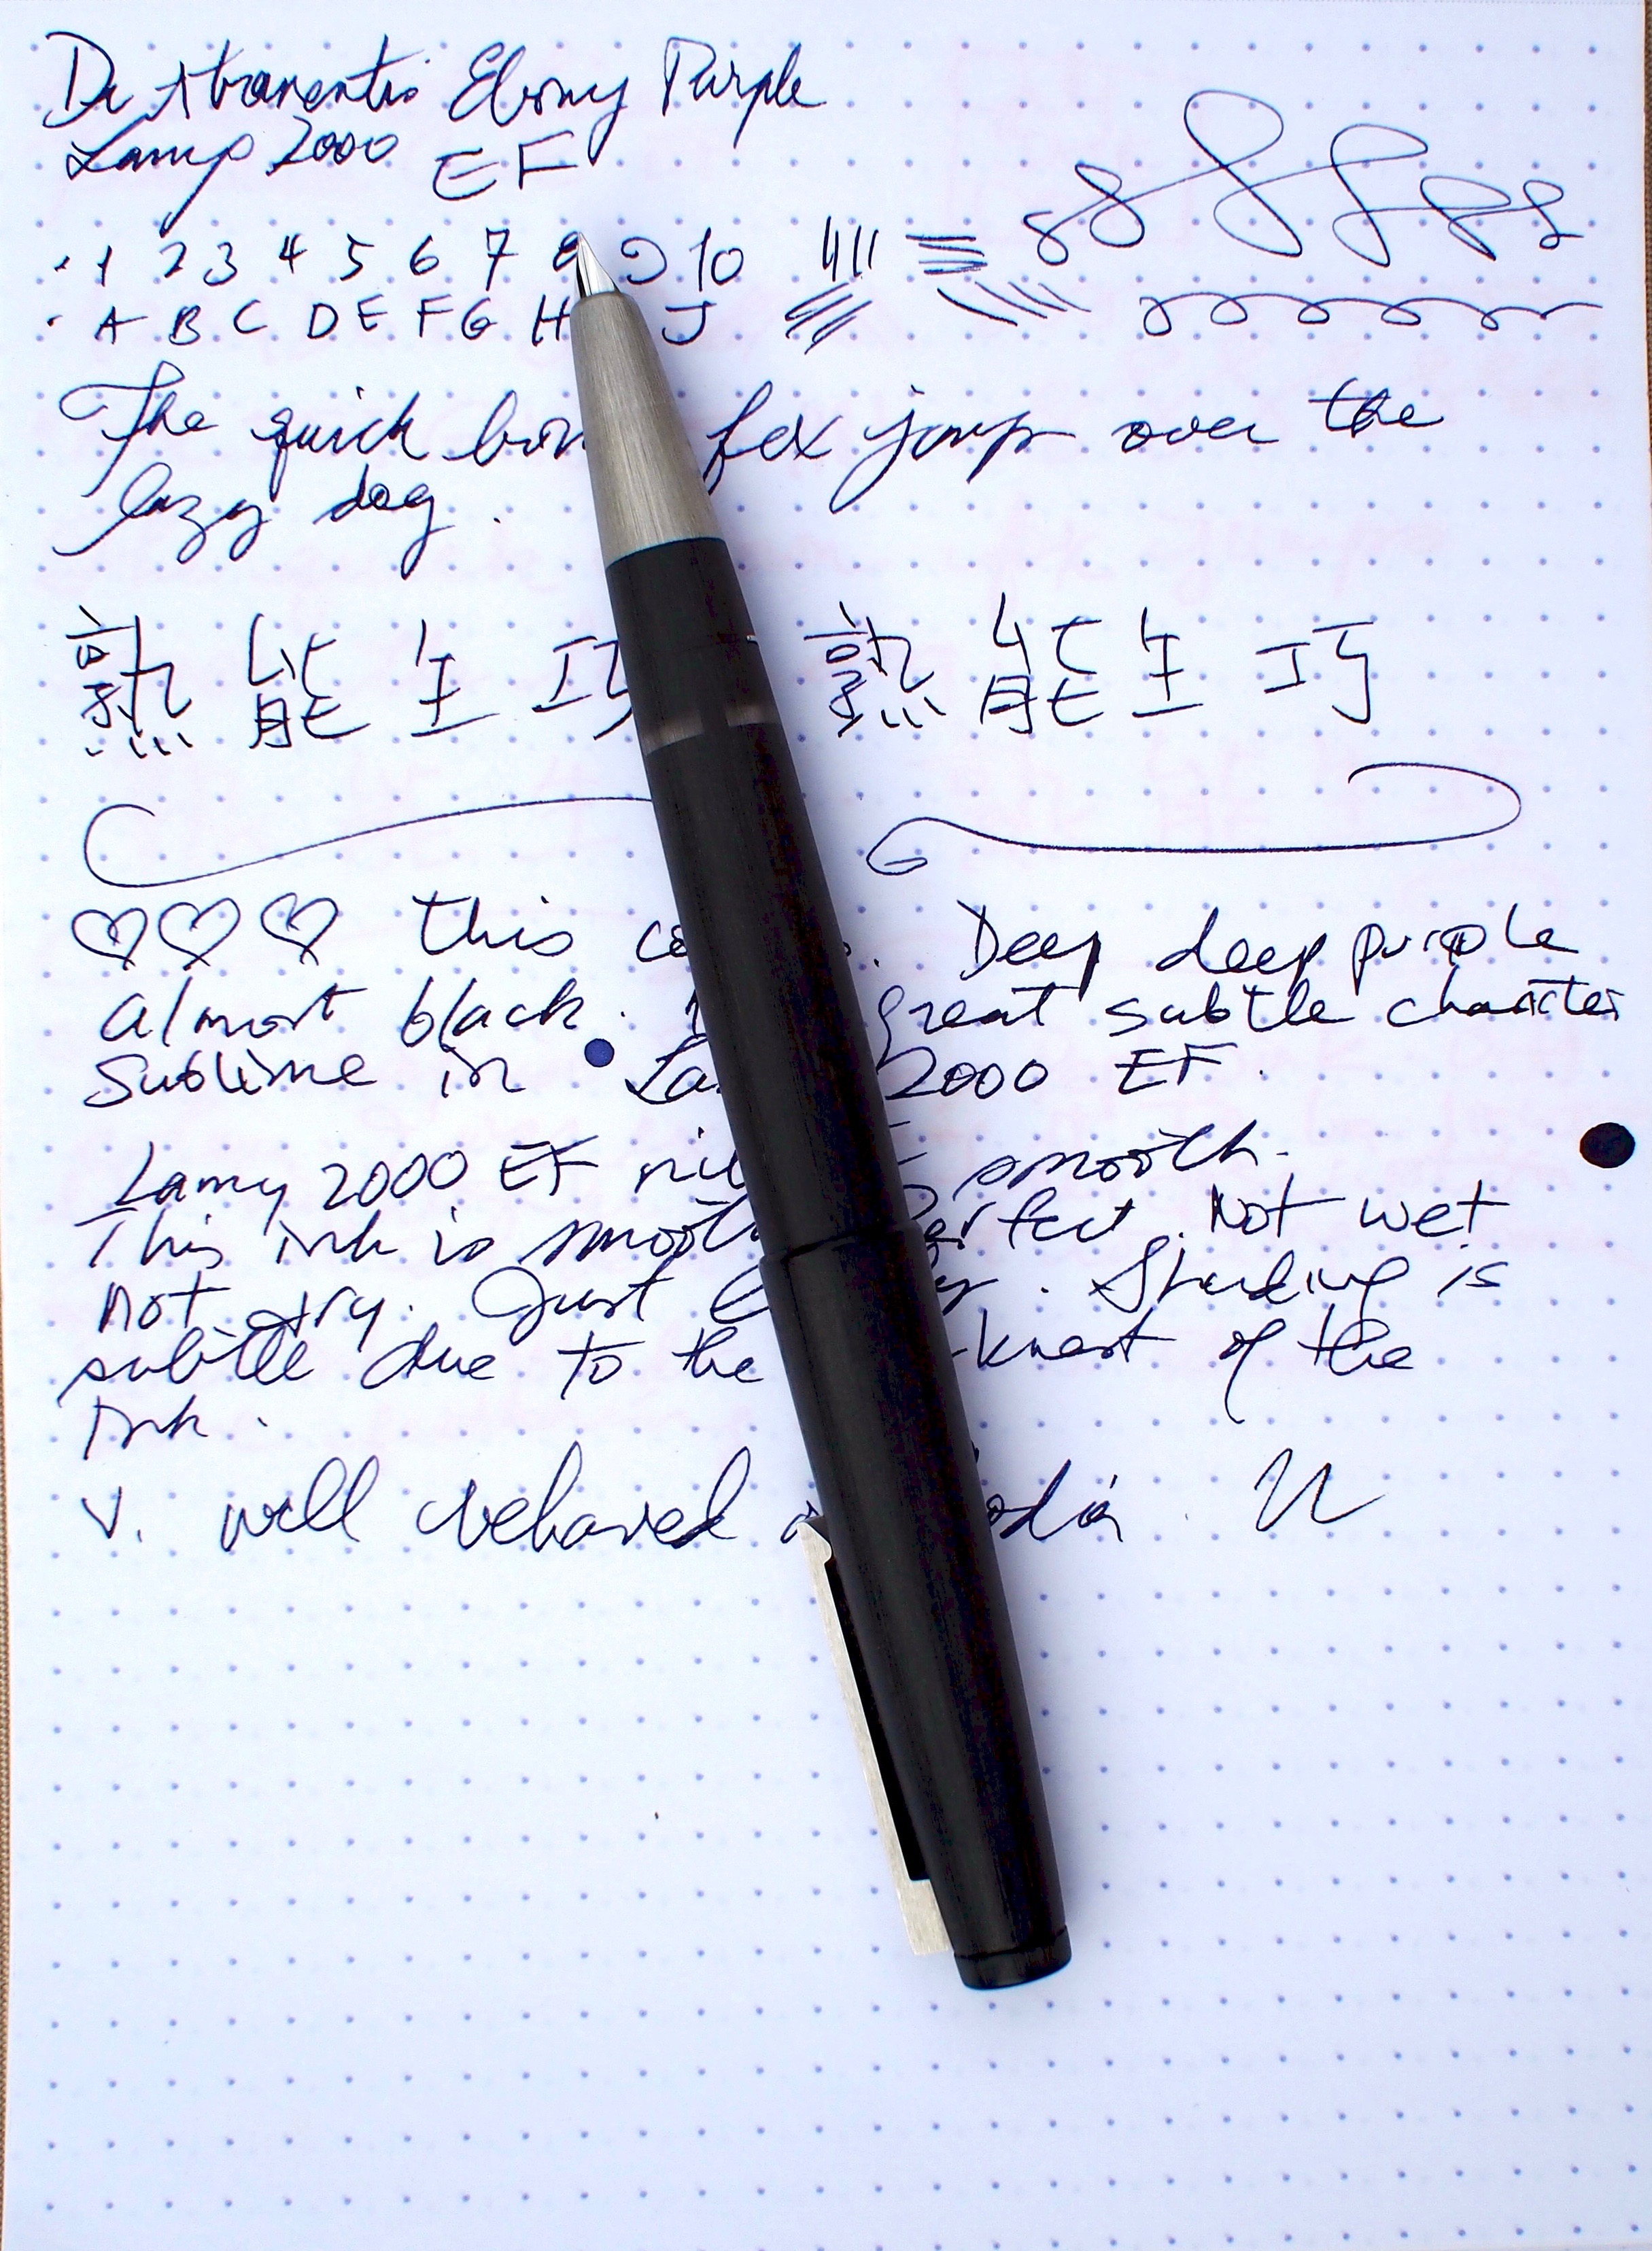 De Atramentis Ebony Purple
Lamy 2000 EF
1 2 3 4 5 6 7 8 9 10
A B C D E F G H J
The quick fox jumps over the
lazy dog.
熟能生巧 熟能生巧
♡♡♡ this Deep deep purple
almost black. great subtle character
Sublime in 2000 EF.
Lamy 2000 EF smooth.
This ink is smooth Not wet
not dry. Just Shading is
subtle due to the of the
ink.
V. well behaved